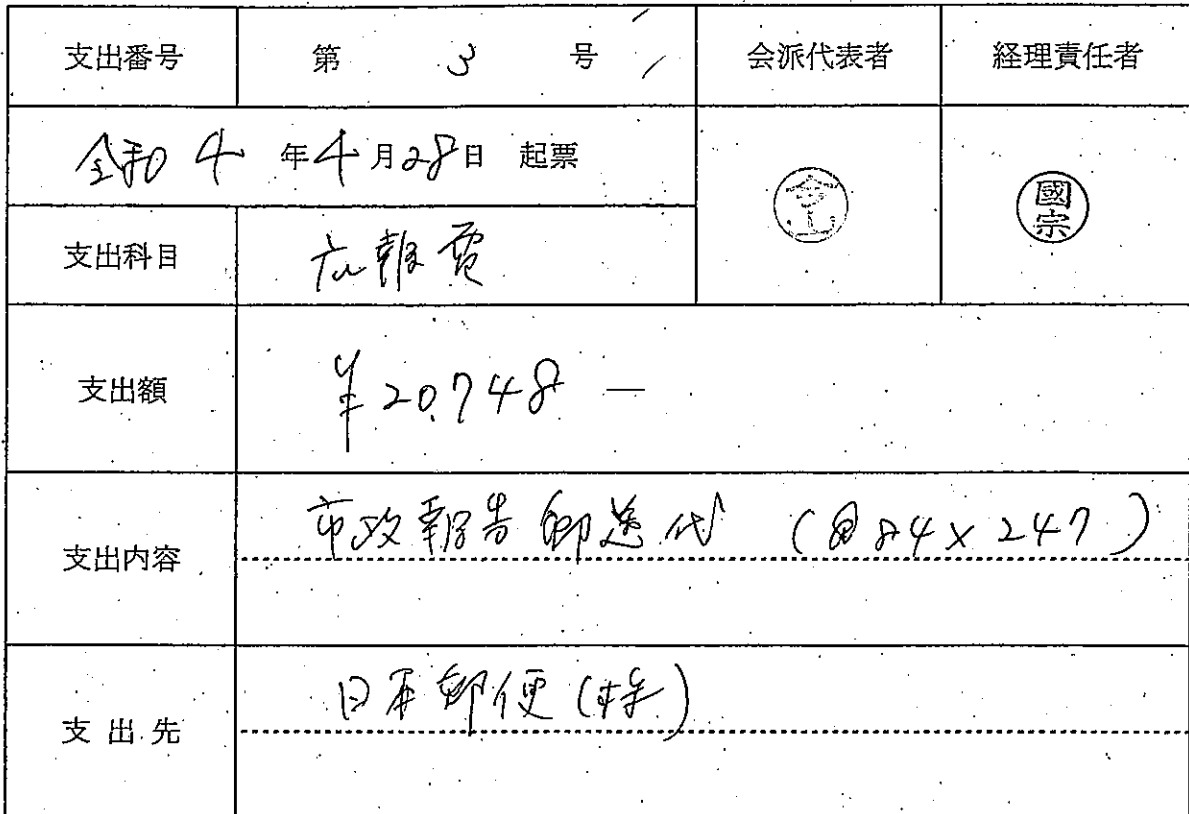 支出番号 第 3 号 会派代表者 経理責任者
令和 4 年 4 月 28 日 起票
國宗
支出科目 広報費
支出額 ¥20,748 —
支出内容 市政報告郵送代 (@84×247)
支出先 日本郵便(株)